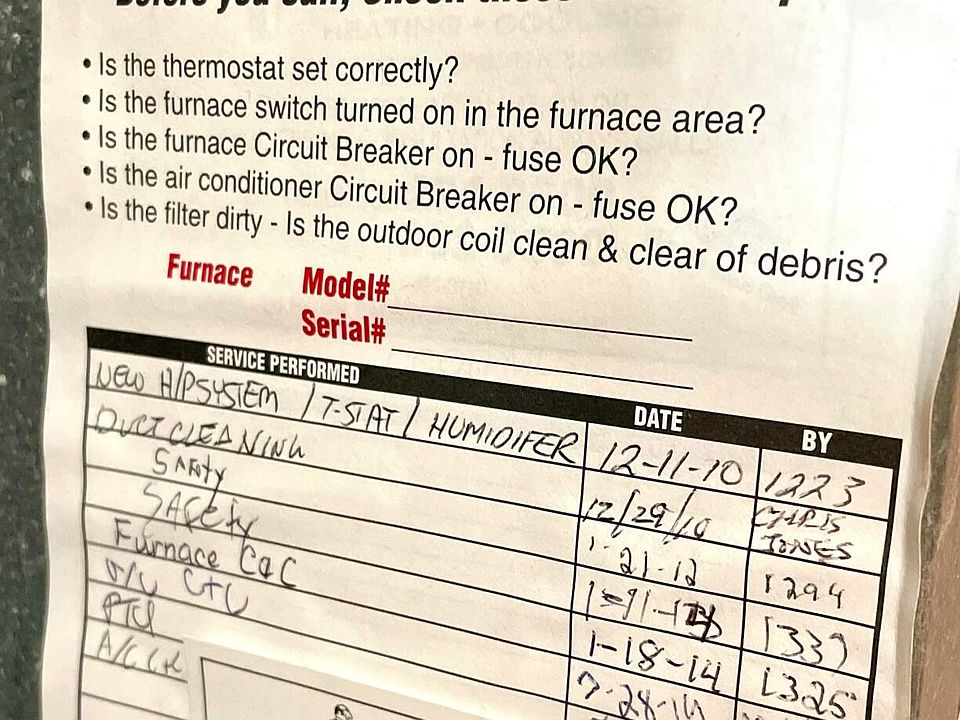 • Is the thermostat set correctly?
• Is the furnace switch turned on in the furnace area?
• Is the furnace Circuit Breaker on - fuse OK?
• Is the air conditioner Circuit Breaker on - fuse OK?
• Is the filter dirty - Is the outdoor coil clean & clear of debris?
Furnace Model#
Serial#
SERVICE PERFORMED DATE BY
NEW H/P SYSTEM / T-STAT / HUMIDIFER 12-11-10 1223
DUCT CLEANING 12/29/10 CHRIS JONES
SAFETY 1-21-12 1294
SAFETY
Furnace CQC 1-18-14 1325
A/C